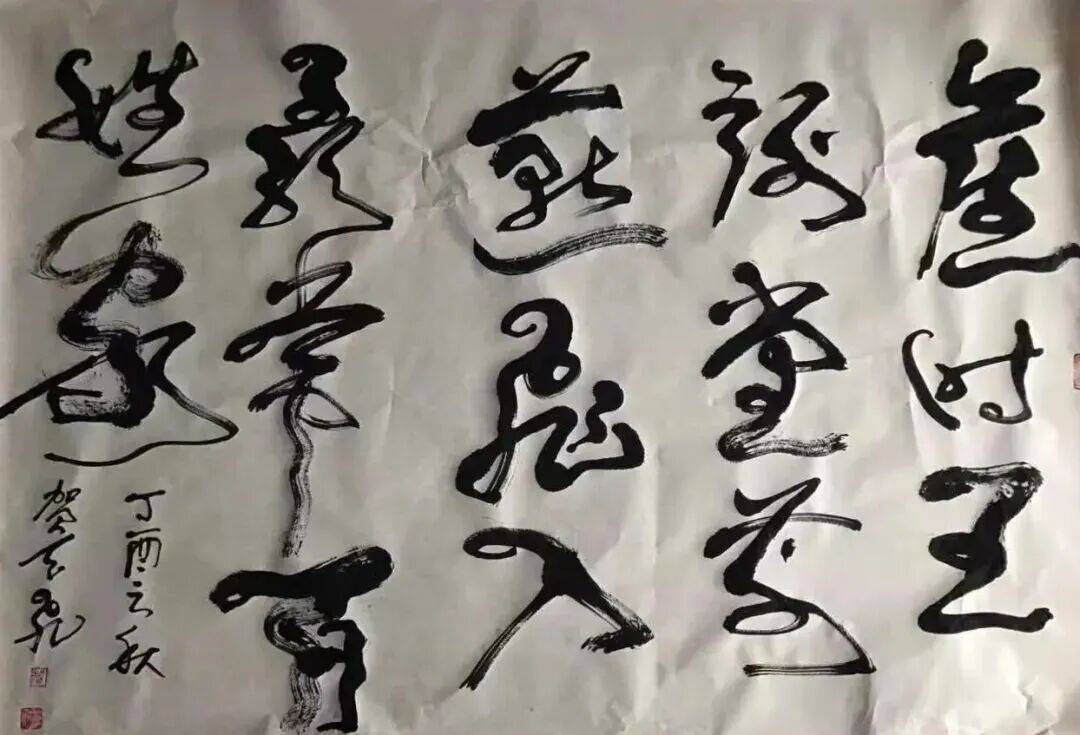 舊时王
谢堂前
燕飛入
尋常百
姓家
丁酉之秋
贺飞